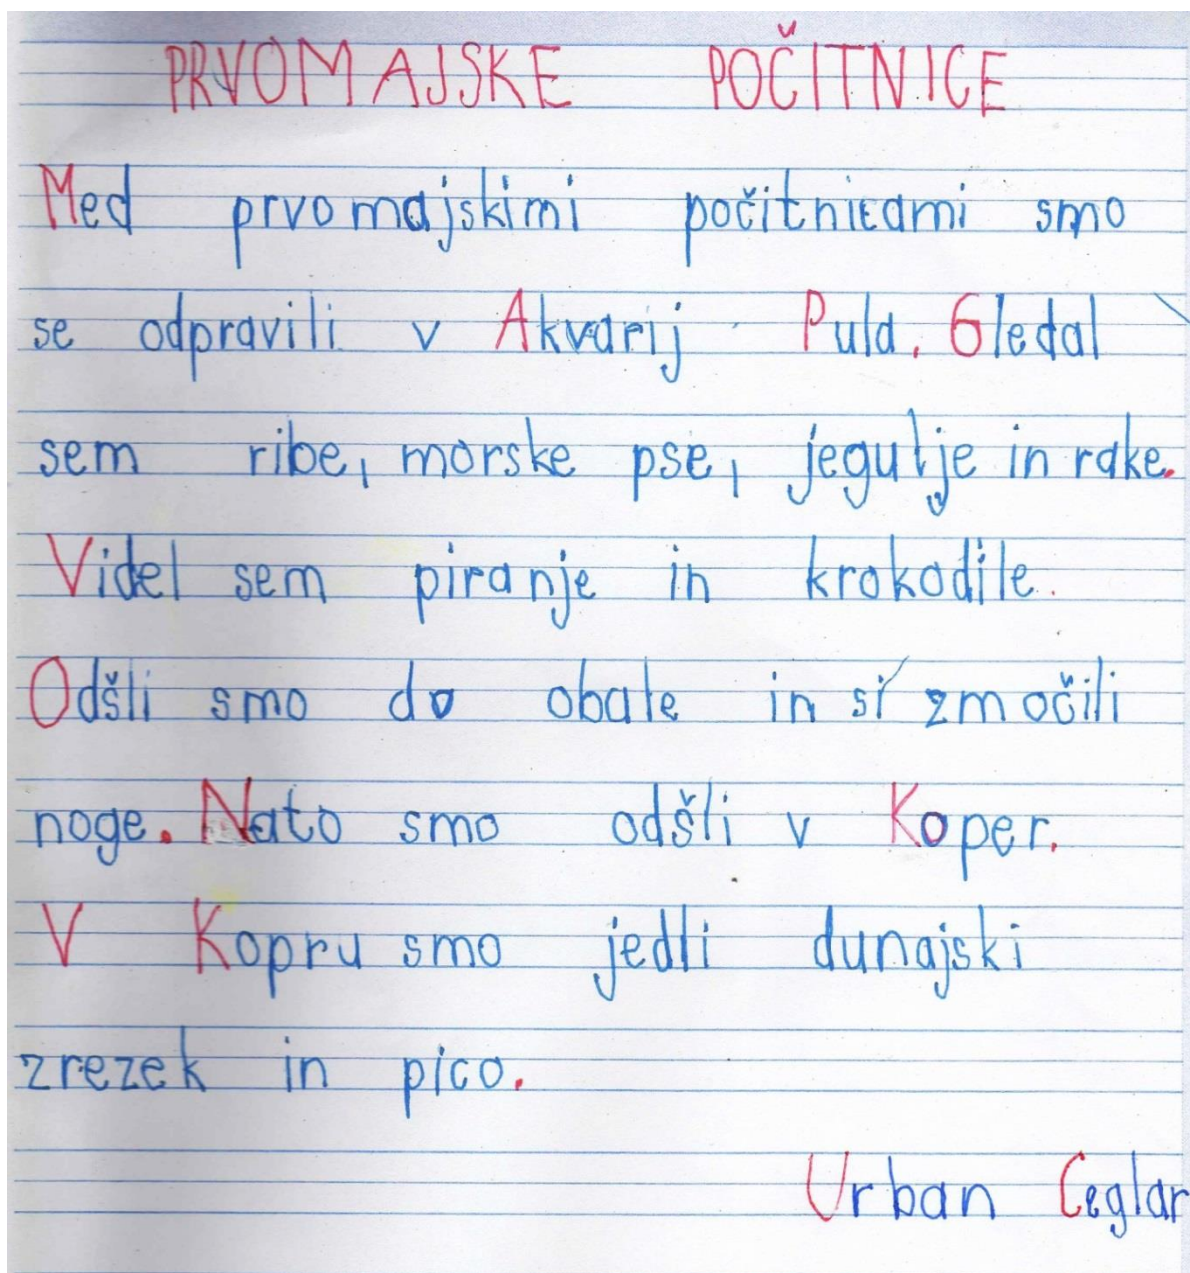 PRVOMAJSKE POČITNICE
Med prvomajskimi počitnicami smo
se odpravili v Akvarij Pula. Gledal
sem ribe, morske pse, jegulje in rake.
Videl sem piranje in krokodile.
Odšli smo do obale in si zmočili
noge. Nato smo odšli v Koper.
V Kopru smo jedli dunajski
zrezek in pico.
Urban Ceglar